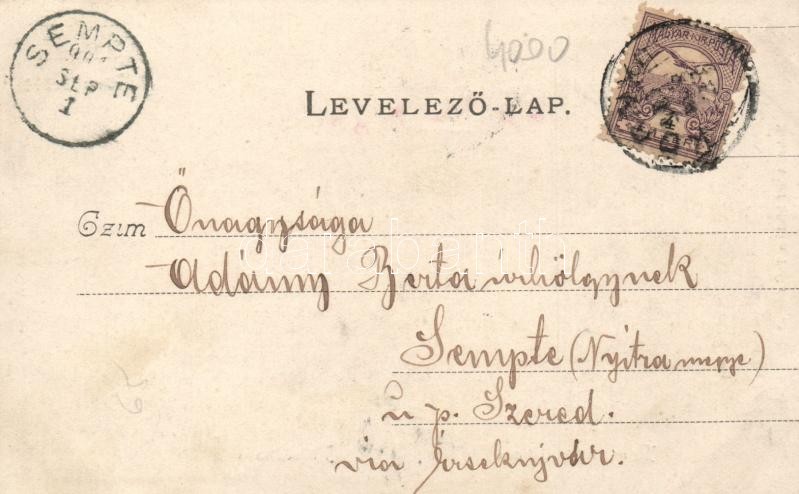 SEMPTE
SEP
1
4000
MAGYAR KIR. POSTA
LEVELEZŐ-LAP.
Czím Őnagysága
Adámy Berta úrhölgynek
Sempte (Nyitra megye)
u p. Szered.
via Érsekujvár.